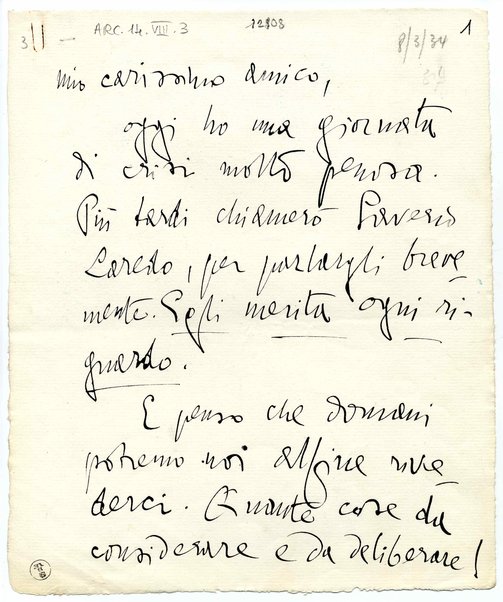 ARC. 14. VIII. 3
12803
1
3
8/3/34
mio carissimo amico,
oggi ho una giornata
di crisi molto penosa.
Più tardi chiamerò Saverio
Laredo, per parlargli breve
mente. Egli merita ogni ri-
guardo.
E penso che domani
potremo noi alfine rive
derci. Quante cose da
considerare e da deliberare!